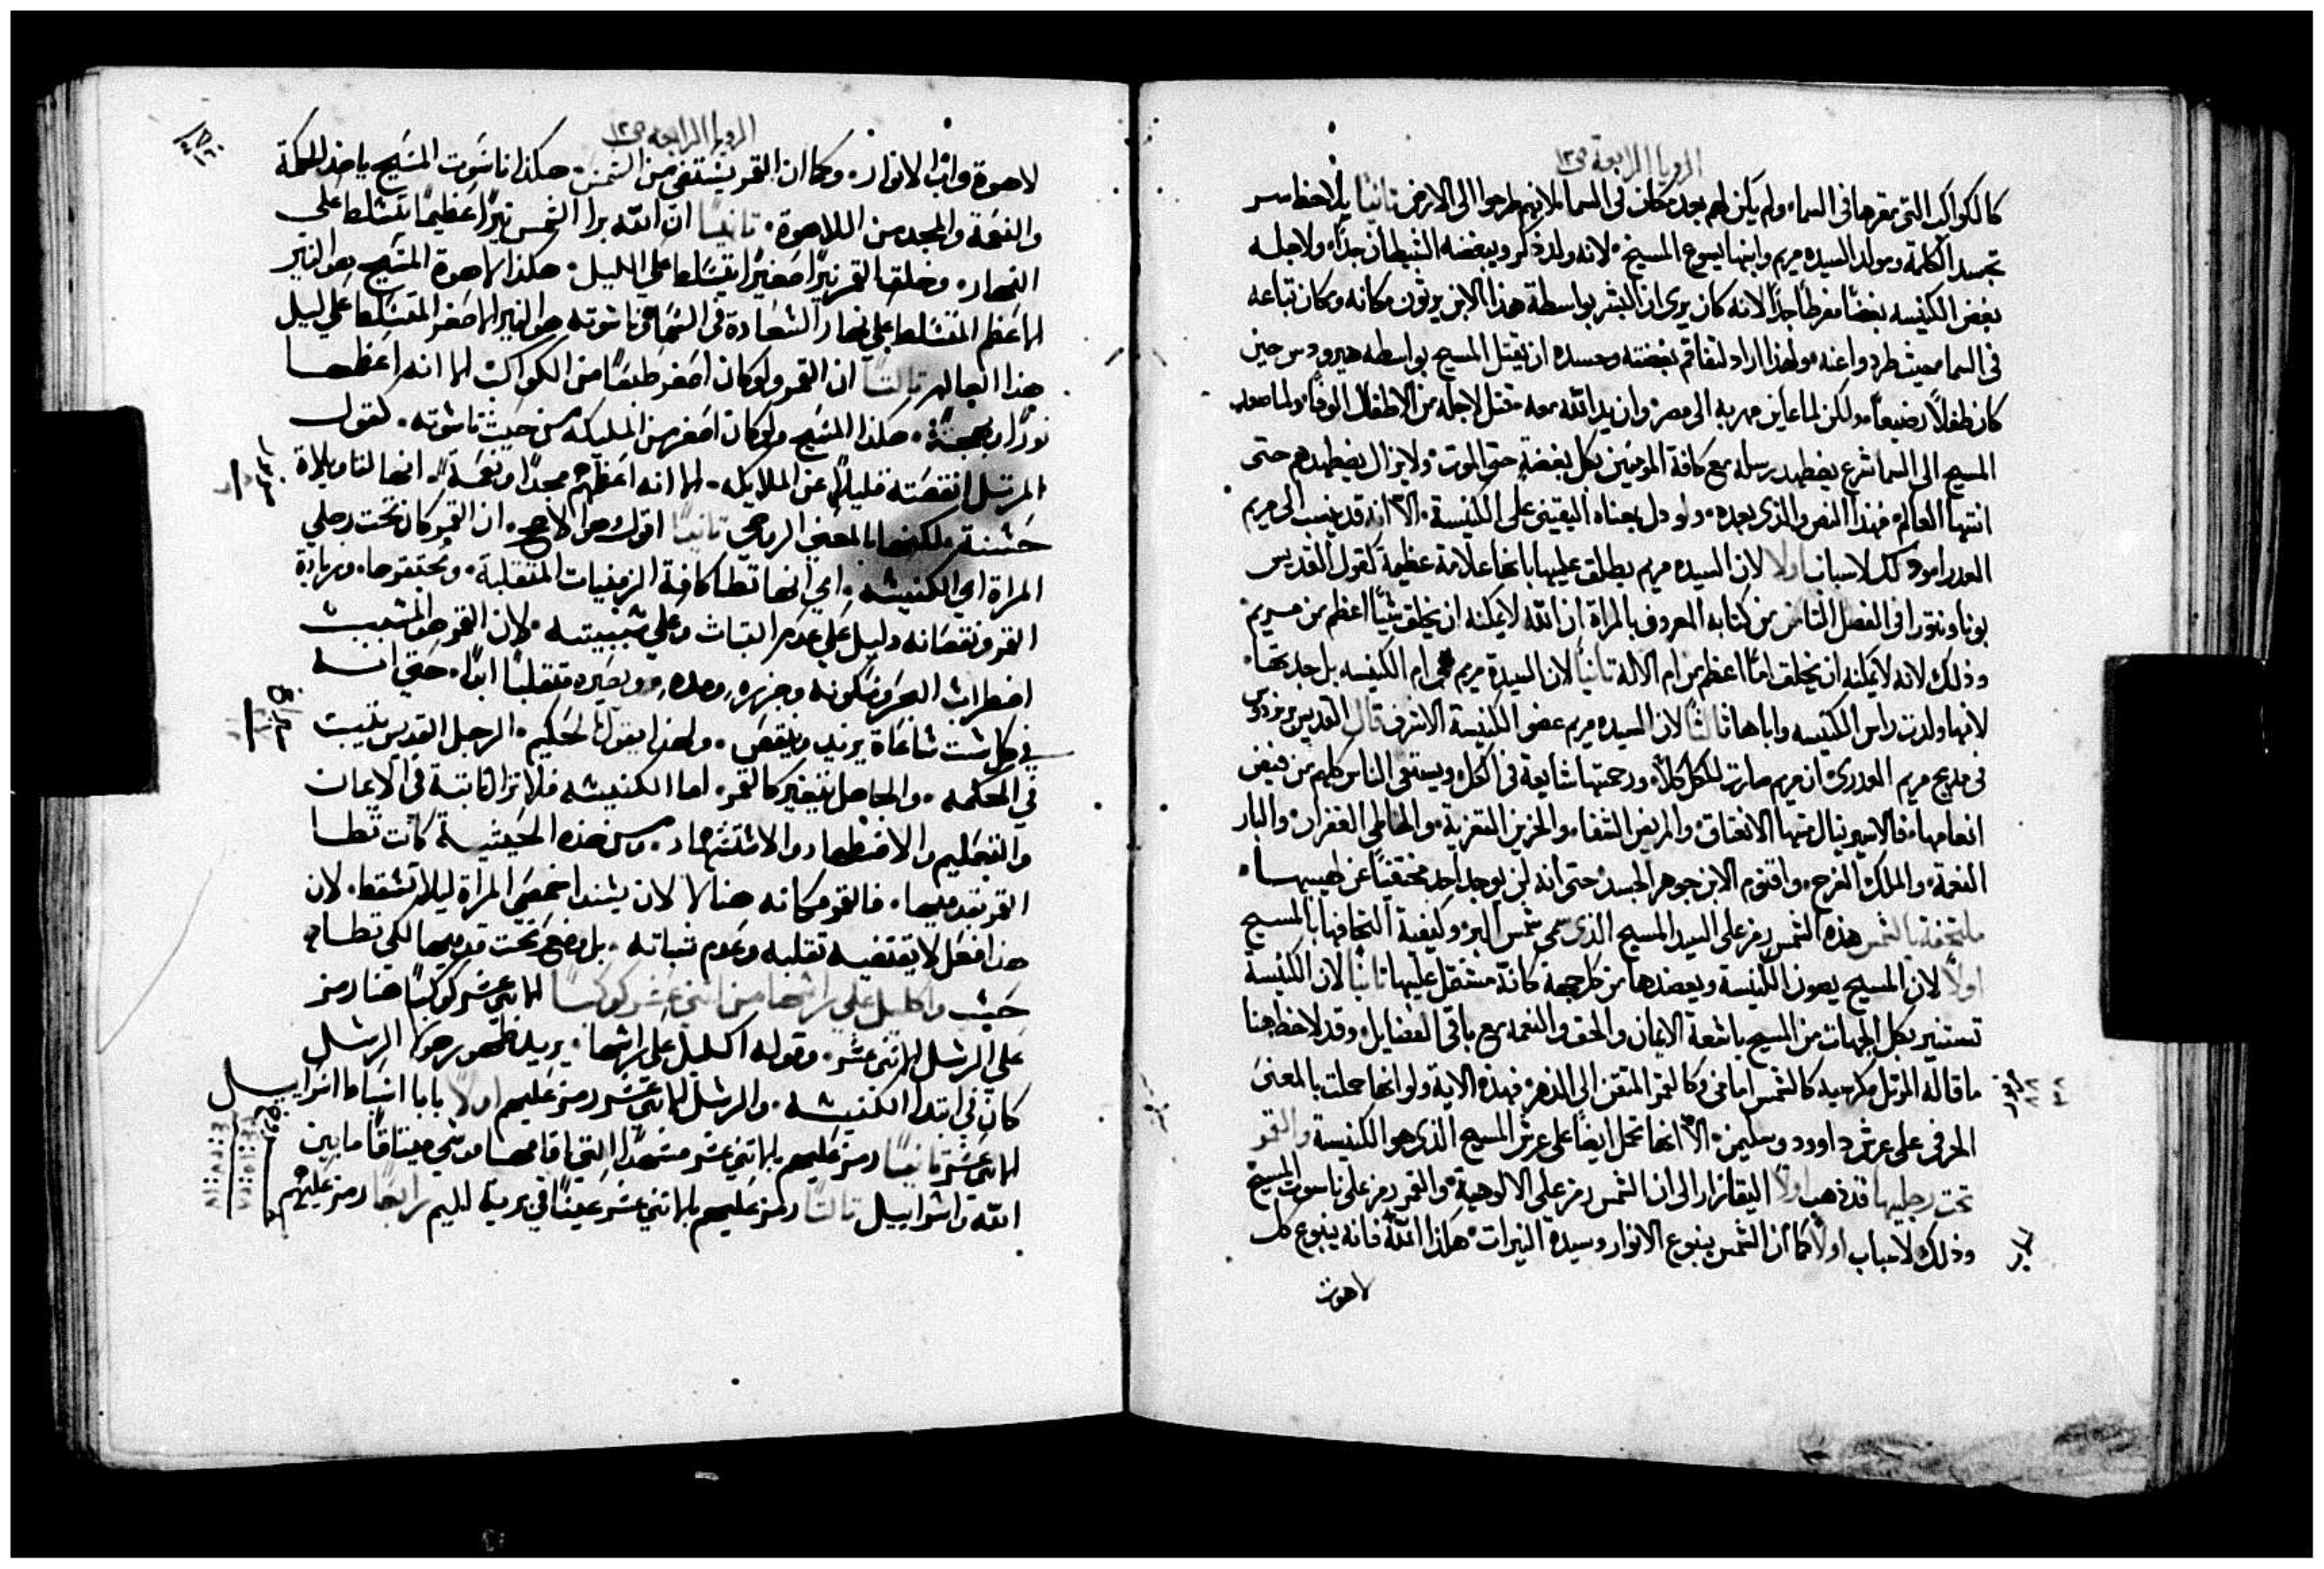 الرويا الرابعة ص١٢
كالكواكب التي مقرها في السماء ولم يكن لهم بعد مكان في السما لانهم طرحوا الى الارض ثانيًا يلاحظ سر
تجسد الكلمة ومولد السيده مريم وابنها يسوع المسيح لانه ولد ذكر ويبغضه الشيطان جدًا ولاجله
بغض الكنيسه بغضًا مفرطًا جدًا لانه كان يرى ان البشر بواسطة هذا الابن يرثون مكانه ومكان تباعه
في السما حيث طردوا عنه ولهذا اراد لتفاقم بغضته وحسده ان يقتل المسيح بواسطه هيرودس حين
كان طفلاً رضيعًا ولكن لما عاين مهربه الى مصر وان يد الله معه فقتل لاجله من الاطفال الوفًا ولما صعد
المسيح الى السما شرع يضطهد رسله مع كافة المومنين بكل بغضة حتى الموت ولا يزال يضطهدهم حتى
انتها العالم فهذا النص والذي بعده ولو دل بمعناه اليقيني على الكنيسة الا انه قد ينسب الى مريم
العدرا وذلك لاسباب اولاً لان السيده مريم يطلق عليها بانها علامة عظيمة كقول القديس
بوناونتورا في الفصل الثامن من كتابه المعروف بالمراة ان الله لا يمكنه ان يخلق شيًا اعظم من مريم
وذلك لانه لا يمكنه ان يخلق امًا اعظم من ام الاله ثانيًا لان السيدة مريم هي ام الكنيسه بل جدتها
لانها ولدت راس الكنيسه واباها ثالثًا لان السيده مريم عضو الكنيسة الاشرف قال القديس برنردوس
في مديح مريم العدرى ان مريم صارت للكل كلاً ورحمتها شايعة في الكل ويستقي الناس كلهم من فيض
انعامها فالاسير ينال منها الانعتاق والمريض الشفا والحزين التعزية والخاطي الغفران والبار
النعمة والملك الفرح واقنوم الابن جوهر الجسد حتى انه لن يوجد احد مختفيًا عن طيبها
ملتحفة بالشمس هذه الشمس رمز على السيد المسيح الذي سمى شمس البر وكيفية التحافها بالمسيح
اولاً لان المسيح يصون الكنيسة ويعضدها من كل جهة كانه مشتمل عليها ثانيًا لان الكنيسة
تستنير بكل الجهات من المسيح باشعة الايمان والحق والنعمه مع باقي الفضايل وقد لاحظ هنا
ما قاله المرتل مكرسيه كالشمس امامي وكالقمر المتقن الى الدهر فهذه الاية ولو انها حملت بالمعنى
الحرفي على عرش داوود وسليمن الا انها تحمل ايضًا على عرش المسيح الذي هو الكنيسة والقمر
تحت رجليها قد ذهب اولاً اليقازار الى ان الشمس رمز على الالوهية والقمر رمز على ناسوت المسيح
وذلك لاسباب اولاً كما ان الشمس ينبوع الانوار وسيدة النيرات هكذا الله فانه ينبوع كل
لاهوت
الرويا الرابعه ص١٢
١٦٠
لاهوة واب الانوار. وكما ان القمر يستضي من الشمس. هكذا ناسوت المسيح ياخذ الحكمة
والنعمة والمجد من اللاهوة. ثانيًا ان الله برا الشمس نيرًا عظيمًا يتسلط على
النهار. وخلق القمر نيرًا صغيرًا يتسلط على الليل. هكذا لاهوة المسيح هو النير
الاعظم المتسلط على نهار السعادة في السما وناسوته هو النير الاصغر المتسلط على ليل
هذا العالم. ثالثًا ان القمر ولو كان اصغر طبعًا من الكواكب الا انه اعظمها
نورًا وبهجة. هكذا المسيح ولو كان اصغر من المليكه من حيث ناسوته. كقول
المرتل انقصته قليلاً عن الملايكه. الا انه اعظمهم مجدًا ونعمة. انها لتاويلاة
حسنة لكنها بالمعنى الرمزي ثانيًا اقول وهو الاصح. ان القمر كان تحت رجلي
المراة اي الكنيسه. اي انها تطا كافة الزمنيات المتقلبة. وتحتقرها. وزيادة
القمر ونقصانه دليل على عدم الثبات وعلى شبيبته. لان القمر هو المسبب
اضطراب البحر وسكونه وجزره ومده. ويصيره متقلبًا ابدًا. حتى انه
في كل ست ساعاة يزيد وينقص. ولهذا يقول الحكيم. الرجل القديس يثبت
في الحكمه. والجاهل يتغير كالقمر. اما الكنيسه فلا تزال ثابتة في الايمان
والتعليم والاضطهاد والاستشهاد. ومن هذه الحيثية كانت تطا
القمر بقدميها. فالقمر مكانه هنا لا لان يسند اخمصي المراة ليلا تسقط. لان
هذا فعل لا يقتضيه تقلبه وعدم ثباته. بل وضع تحت قدميها لكي تطاه
حسب واكليل على راسها من اثني عشر كوكبًا الاثني عشر كوكبًا هنا رمز
على الرسل الاثني عشر. وقوله اكليل على راسها. يريد ظهور رهوط الرسل
كان في ابتدا الكنيسه. والرسل الاثني عشر رمز عليهم اولاً باباء اسباط اسراييل
الاثني عشر ثانيًا رمز عليهم بالاثني عشر مشهدًا التي اقامها موسى ميثاقًا ما بين
الله واسراييل ثالثًا رمز عليهم بالاثني عشر عينًا في برية ايليم رابعًا رمز عليهم